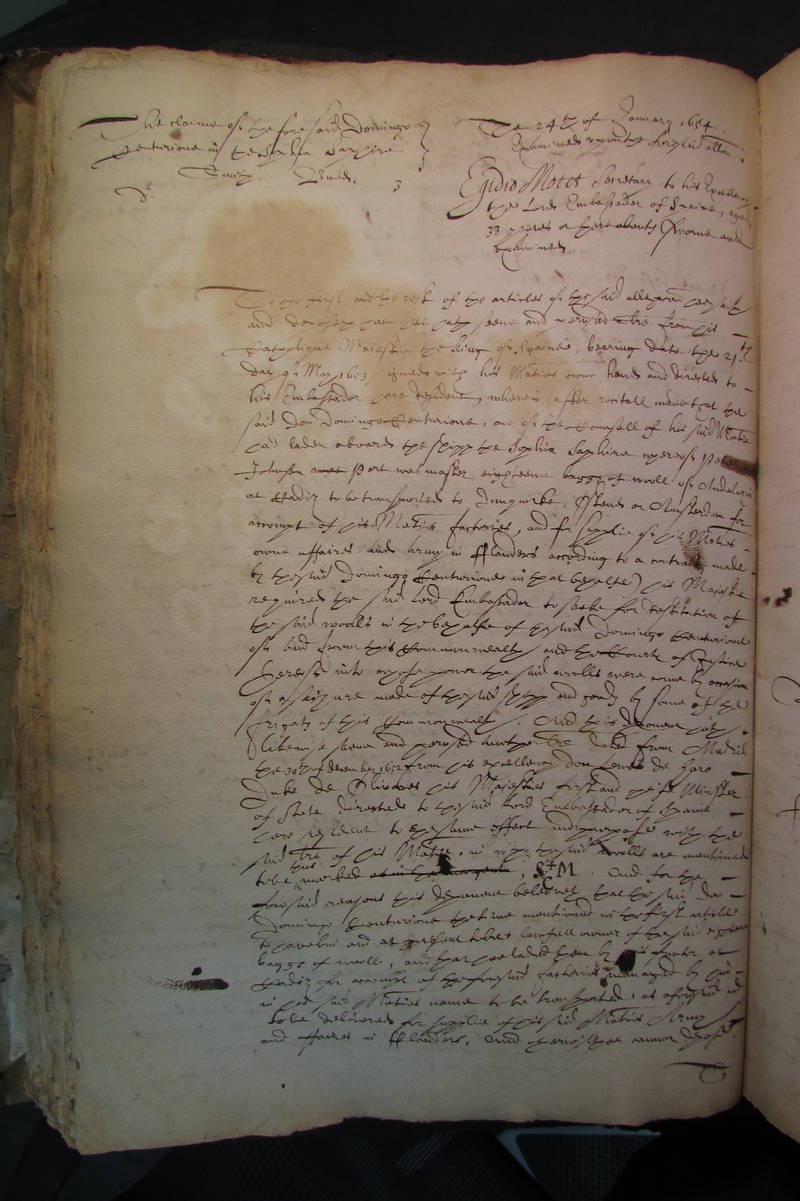 The claime of the foresaid Domingo
Centurione in the Saphire
Smith. Budd. 3
The 24th of January 1654
Examined upon the foresaid allon.
Egidio Motet Secretary to his Excellency
the Lord Embassador of Spaine, aged
33 yeares or thereabouts sworne and
examined
To the first and the rest of the articles of the said allegation hee saith
and deposeth that hee hath seene and perused the lre from his
Catholique Majestie the King of Spaine, bearing date the 21th
day of May 1653 signed with his Maties owne hand and directed to
his Embassador here resident, wherein after recitall made that the
said Don Domingo Centurione, one of the Counsell of his said Matie
had laden aboard the shipp the Sophia Saphire whereof
Johnson Port was master eighteene baggs of wooll of Andaluzia
at Cadiz to be transported to Dunquirke, Ostend or Amsterdam for
accompt of his Maties factories, and for supplie of his Maties
owne affaires and Army in fflanders according to a contract made
by the said Domingo Centurione in that behalfe, his Majestie
required the said Lord Embassador to seeke for restitution of
the said woolls in the behalfe of the said Domingo Centurione
of and from this Commonwealth and the Courts of Justice
hereof into whose power the said woolls were come by occasion
of a seizure made of the said shipp and goods by some of the
frigats of this Commonwealth. And this deponent hath
likewise seene and perused another lre dated from Madrid
the 30th of december 1652 from his excellency don Lewes de Haro
Duke de Olivares his Majesties first and chiefe Minister
of State directed to the said Lord Embassador of Spaine
here resident to the same effect and purpose with the
said lre of his Matie, in which the said woolls are mentioned
to be thus marked as in the margent, S+M. And for the
foresaid reasons this deponent beleeveth that the said
Domingo Centurione the time mentioned in the first article
was and at present is lawfull owner of the said eighteene
baggs of wooll, and that hee laded them by his factor at
Cadiz for accompt of the foresaid factories managed by him
in his said Maties name to be transported, as aforesaid and
to be delivered for supplie of his said Maties Army
and affaires in fflanders, And otherwise hee cannot depose.